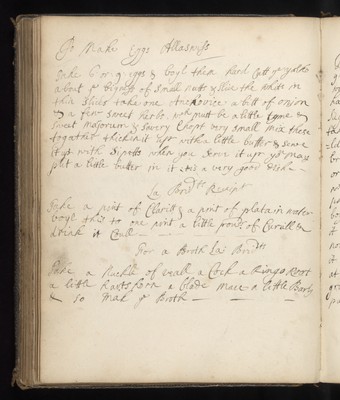 To Make Eggs Allasness
Take 8 or 9 eggs & boyl them hard Cutt ye yealks
about ye Bigness of small nutts & slice the white in
thin slices take one Anchovice a bitt of onion
& a few sweet herbs wch must be a little tyme &
sweet marjorum & savery Chopt very small mix these
togather thicken it up with a little butter & serve
it up with Sipetts when you serve it up you may
put a little butter in it its a very good dish
La: Receipt
Take a pint of Claritt & a pint of plantain water
boyle this to one pint a little point of
drink it Could
For a Broth La:
Take a Nuckle of veall a Cock a Ringo Root
a little hartshorn a blade mace a little Barly
& so mak ye Broth